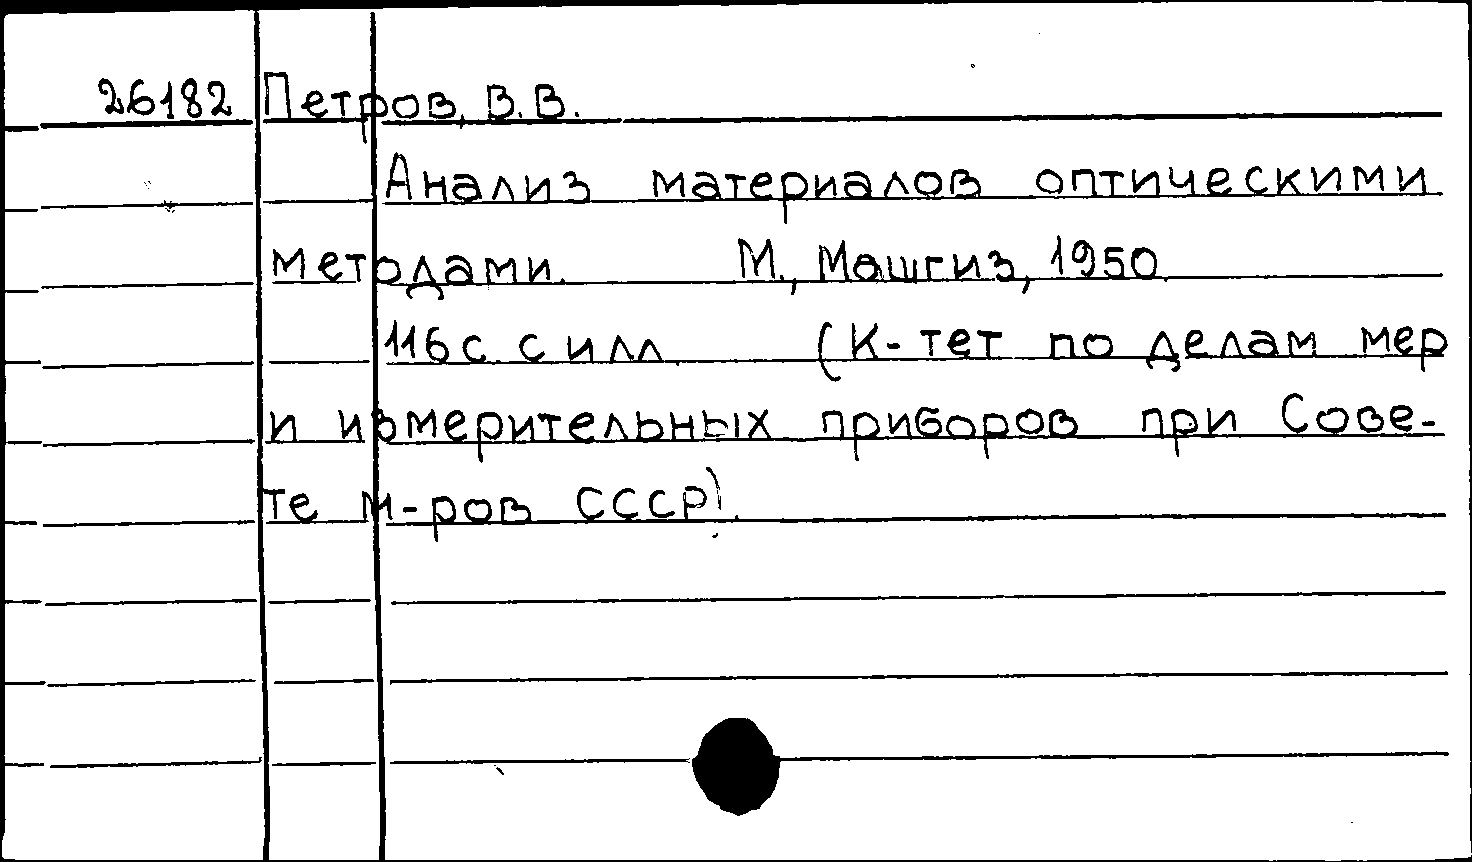 26182 Петров, В.В.
Анализ материалов оптическими
методами. М., Машгиз, 1950.
116 с. с илл. (К-тет по делам мер
и измерительных приборов при Сове-
те м-ров СССР).